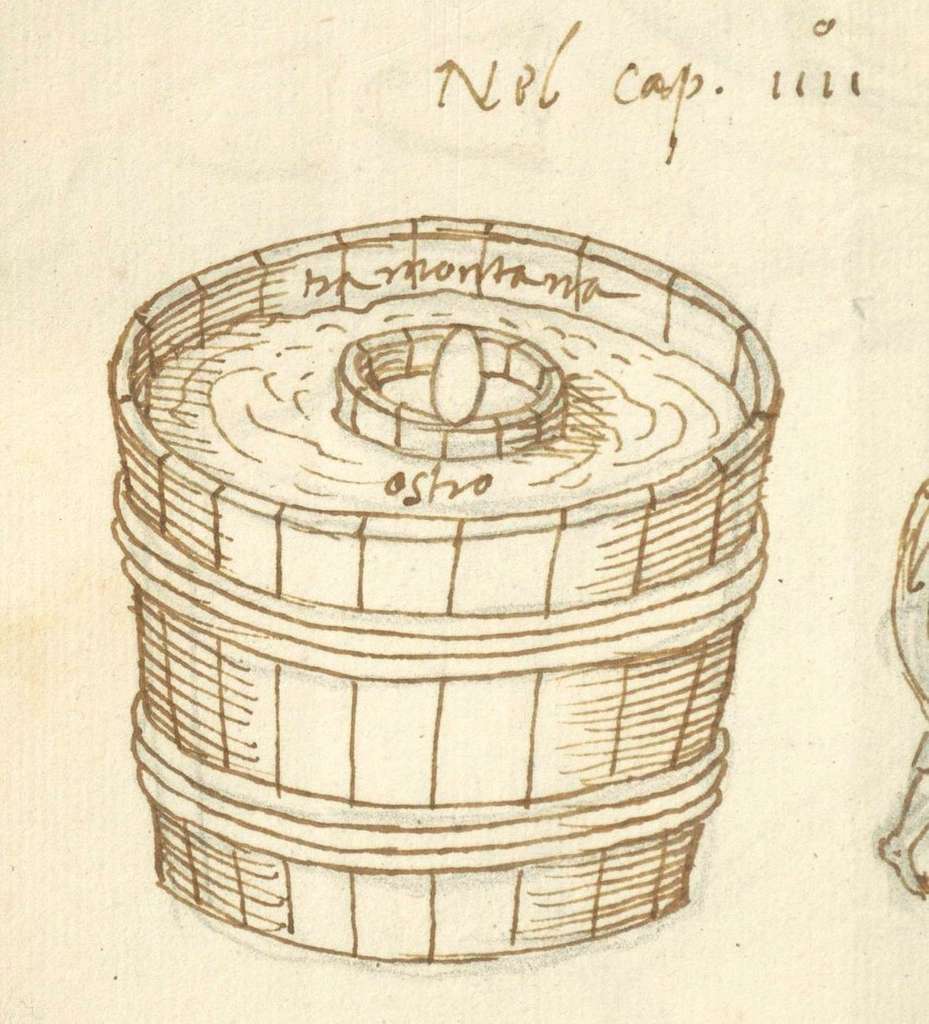 Nel cap. iiii°
tramontana
ostro